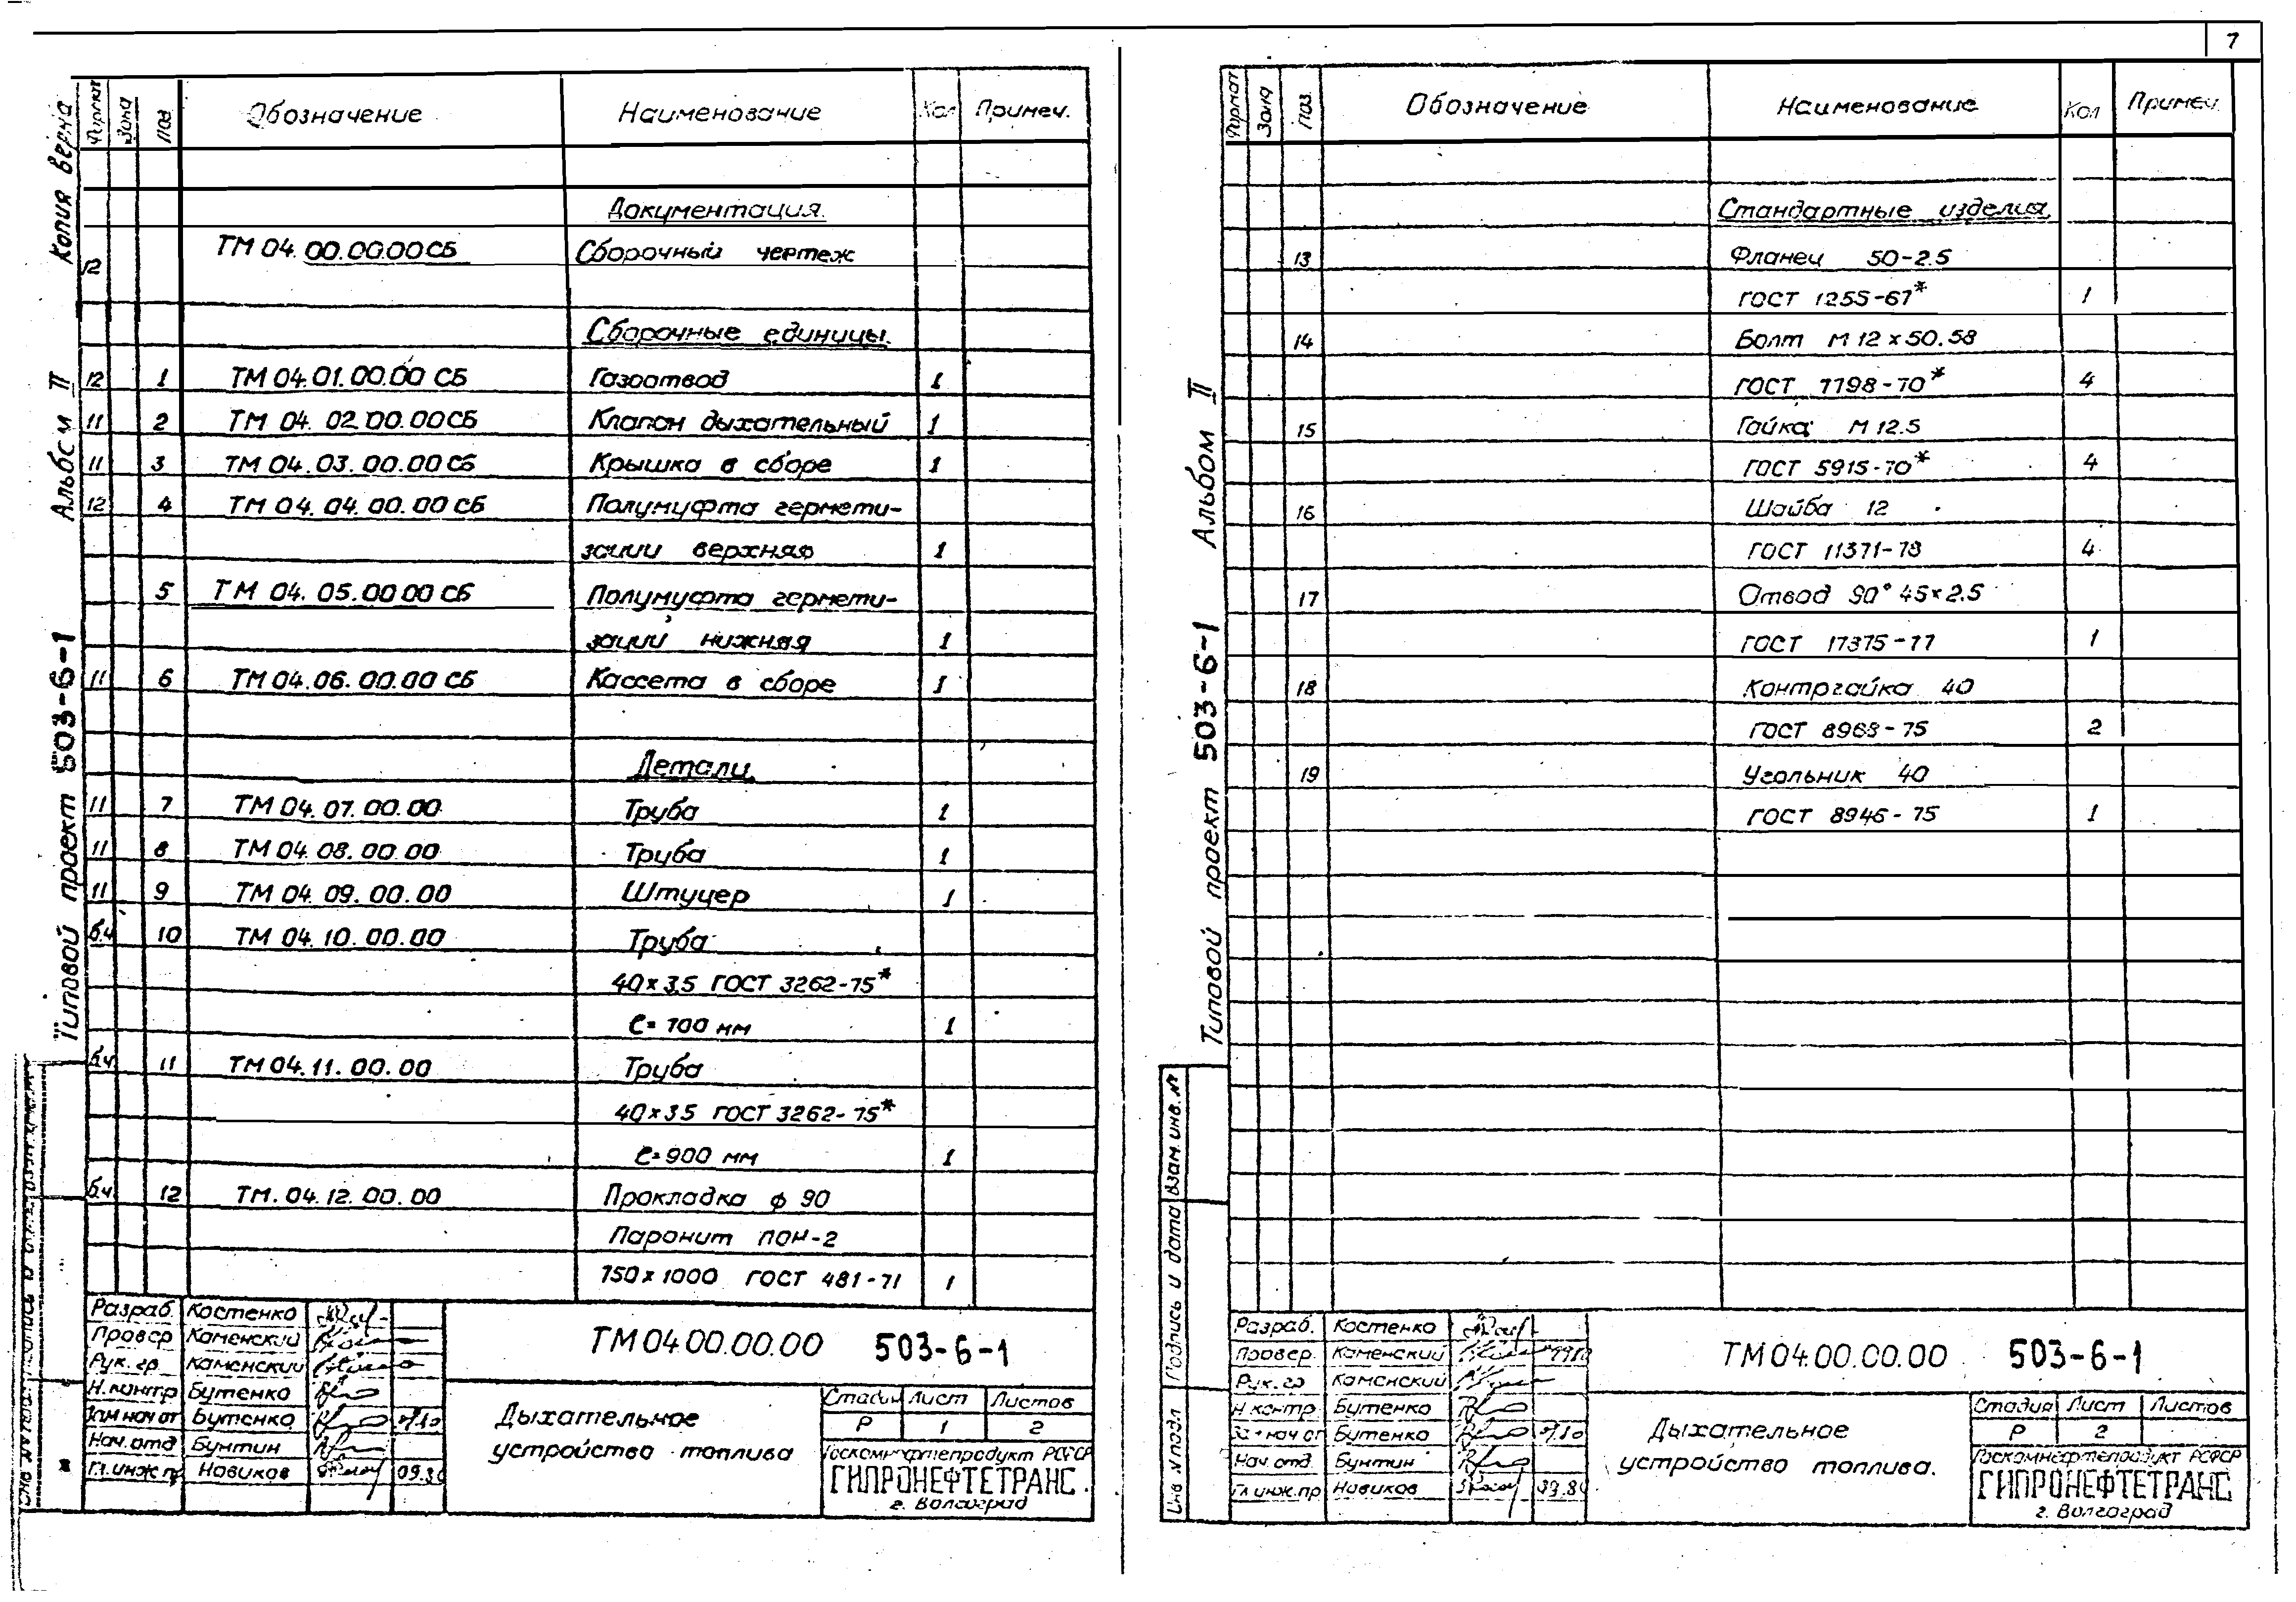 7
Копия верна
Альбом II
Типовой проект 503-6-1
Формат Зона Поз Обозначение Наименование Кол Примеч.
Документация.
12 ТМ 04.00.00.00 СБ Сборочный чертеж
Сборочные единицы.
12 1 ТМ 04.01.00.00 СБ Газоотвод 1
11 2 ТМ 04.02.00.00 СБ Клапан дыхательный 1
11 3 ТМ 04.03.00.00 СБ Крышка в сборе 1
12 4 ТМ 04.04.00.00 СБ Полумуфта гермети-
зации верхняя 1
5 ТМ 04.05.00.00 СБ Полумуфта гермети-
зации нижняя 1
11 6 ТМ 04.06.00.00 СБ Кассета в сборе 1
Детали
11 7 ТМ 04.07.00.00 Труба 1
11 8 ТМ 04.08.00.00 Труба 1
11 9 ТМ 04.09.00.00 Штуцер 1
б.ч 10 ТМ 04.10.00.00 Труба
40×3.5 ГОСТ 3262-75*
ℓ=700 мм 1
б.ч 11 ТМ 04.11.00.00 Труба
40×3.5 ГОСТ 3262-75*
ℓ=900 мм 1
б.ч 12 ТМ.04.12.00.00 Прокладка ф 90
Паронит ПОН-2
750×1000 ГОСТ 481-71 1
Разраб. Костенко
Провер Каменский
Рук. гр. Каменский
Н.контр Бутенко
Зам нач от Бутенко
Нач. отд Бунтин
Гл. инж. пр Новиков 09.80
ТМ 04.00.00.00 503-6-1
Дыхательное
устройство топлива
Стадия Лист Листов
Р 1 2
Госкомнефтепродукт РСФСР
ГИПРОНЕФТЕТРАНС
г. Волгоград
Альбом II
Типовой проект 503-6-1
Взам.инв.№
Подпись и дата
Инв.№подл
Формат Зона Поз. Обозначение Наименование Кол Примеч.
Стандартные изделия
13 Фланец 50-2.5
ГОСТ 1255-67* 1
14 Болт М 12×50.58
ГОСТ 7798-70* 4
15 Гайка М 12.5
ГОСТ 5915-70* 4
16 Шайба 12
ГОСТ 11371-78 4
17 Отвод 90° 45×2.5
ГОСТ 17375-77 1
18 Контргайка 40
ГОСТ 8968-75 2
19 Угольник 40
ГОСТ 8946-75 1
Разраб. Костенко
Провер. Каменский
Рук. гр Каменский
Н.контр Бутенко
Зам нач от Бутенко
Нач. отд. Бунтин
Гл инж. пр Новиков 09.80
ТМ 04.00.00.00 503-6-1
Дыхательное
устройство топлива.
Стадия Лист Листов
Р 2
Госкомнефтепродукт РСФСР
ГИПРОНЕФТЕТРАНС
г. Волгоград